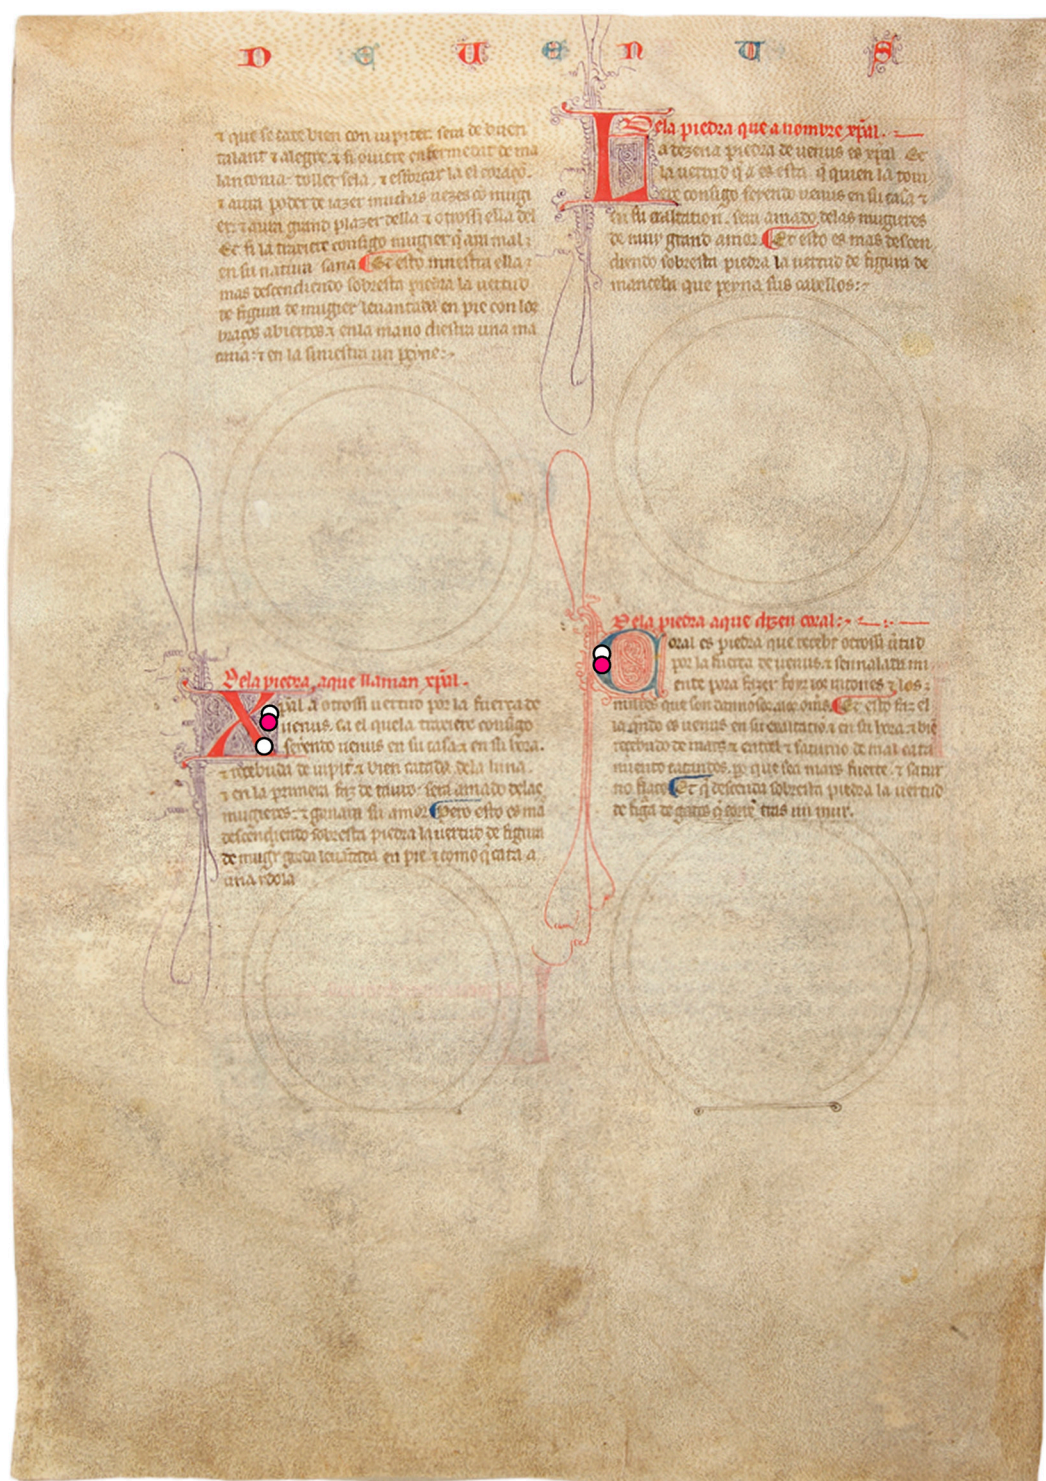 D E U E N U S
⁊ que se cate bien con iupiter. sera de buen
talant ⁊ alegre. ⁊ si ouiere enfermedat de ma
lanconia. toller sela. ⁊ esforcar la el coraçō.
⁊ aura poder de iazer muchas uezes cō mugi
er. ⁊ aura grand plazer della ⁊ otrossi ella del
Et si la troxiere consigo mugier q̄
en su natura sana Et esto muestra ella:
mas descendiendo sobresta piedra la uertud
de figura de mugier leuantada en pie con los
braços abiertos. ⁊ en la mano diestra una ma
çana: ⁊ en la siniestra un peyne:-
Dela piedra, aque llaman xp̄al.
Xpal a otrossi uertud por la fuerça de
uenus. ca el quela troxiere consigo
seyendo uenus en su casa ⁊ en su hora.
⁊ recebuda de iupiter ⁊ bien catada dela luna.
⁊ en la primera faz de tauro: sera amado delas
mugieres: ⁊ ganara su amor Pero esto es mā
descendiendo sobresta piedra la uertud de figura
de mugier leuātada en pie ⁊ como q̄ cata a
una ydola
Dela piedra que a nombre xp̄al.
La dezena piedra de uenus es xp̄al. Et
la uertud q̄ a es esta. q̄ quien la tou
iere consigo seyendo uenus en su casa ⁊
en su exaltation. sera amado delas mugieres
de muy grand amor. Et esto es mas descen
diendo sobresta piedra la uertud de figura de
manceba que peyna sus cabellos:-
Dela piedra aque dizen coral:-
Coral es piedra que recebe otrossi ūtud
por la fuerça de uenus. ⁊ sennalada mi
ente pora fazer foyr los ratones ⁊ los:
mures que son dannosos alos om̄s. Et esto faz el
la q̄ndo es uenus en su exaltatiō ⁊ en su hora. ⁊ biē
recebudo de mars ⁊ ⁊ saturno de mal cata
miento catandos. por que sea mars fuerte. ⁊ satur
no flaco Et q̄ descenda sobresta piedra la uertud
de figā de gatos q̄ corrē tras un mur.